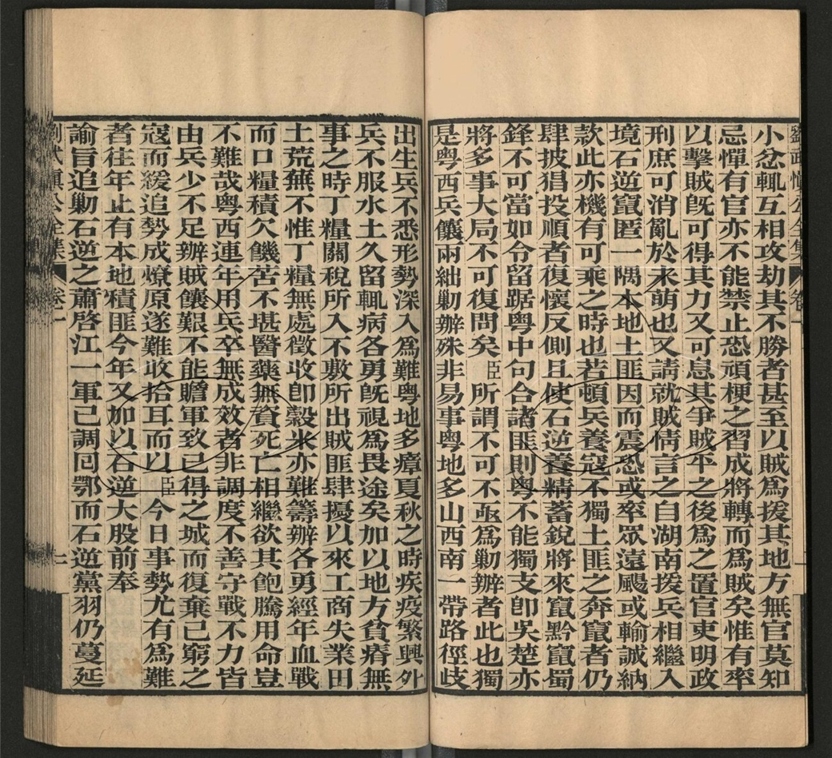 劉武慎公全集 卷一
小忿輒互相攻劫其不勝者甚至以賊爲援其地方無官莫知
忌憚有官亦不能禁止恐頑梗之習成將轉而爲賊矣惟有率
以擊賊旣可得其力又可息其爭賊平之後爲之置官吏明政
刑庶可消亂於未萌也又請就賊情言之自湖南援兵相繼入
境石逆竄匿一隅本地土匪因而震恐或率眾遠颺或輸誠納
款此亦機有可乘之時也若頓兵養寇不獨土匪之奔竄者仍
肆披猖投順者復懷反側且使石逆養精蓄銳將來竄黔竄蜀
鋒不可當如令留踞粵中句合諸匪則粵不能獨支卽吳楚亦
將多事大局不可復問矣臣所謂不可不亟爲勦辦者此也獨
是粵西兵饟兩絀勦辦殊非易事粵地多山西南一帶路徑歧
出生兵不悉形勢深入爲難粵地多瘴夏秋之時疾疫繁興外
兵不服水土久留輒病各勇旣視爲畏途矣加以地方貧瘠無
事之時丁糧關稅所入不敷所出賊匪肆擾以來工商失業田
土荒蕪不惟丁糧無處徵收卽穀米亦難籌辦各勇經年血戰
而口糧積欠饑苦不堪醫藥無資死亡相繼欲其飽騰用命豈
不難哉粵西連年用兵卒無成效者非調度不善守戰不力皆
由兵少不足辦賊饟艱不能贍軍致已得之城而復棄已窮之
寇而緩追勢成燎原遂難收拾耳而以臣今日事勢尤有爲難
者往年止有本地積匪今年又加以石逆大股前奉
諭旨追勦石逆之蕭啓江一軍已調囘鄂而石逆黨羽仍蔓延
劉武愼公全集 卷一